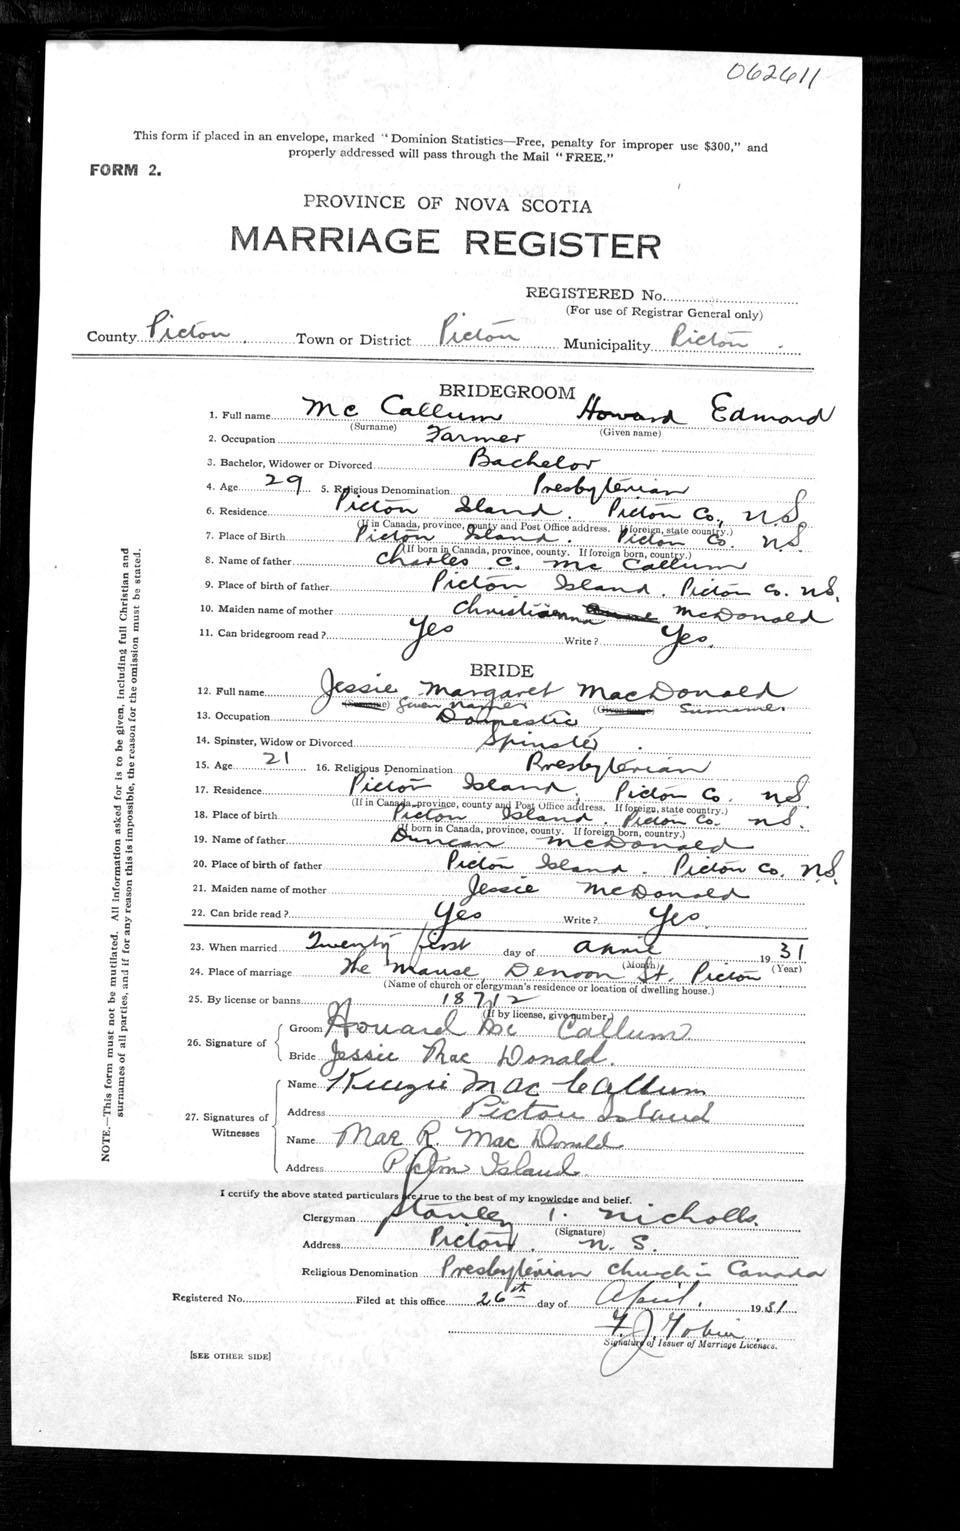 062611
This form if placed in an envelope, marked "Dominion Statistics—Free, penalty for improper use $300," and
properly addressed will pass through the Mail "FREE."
FORM 2.
PROVINCE OF NOVA SCOTIA
MARRIAGE REGISTER
REGISTERED No.
(For use of Registrar General only)
County Pictou Town or District Pictou Municipality Pictou
BRIDEGROOM
1. Full name Mc Callum Howard Edmond
(Surname) (Given name)
2. Occupation Farmer
3. Bachelor, Widower or Divorced Bachelor
4. Age 29 5. Religious Denomination Presbyterian
6. Residence Pictou Island. Pictou Co., N.S.
(If in Canada, province, county and Post Office address. If foreign, state country.)
7. Place of Birth Pictou Island. Pictou Co. N.S.
(If born in Canada, province, county. If foreign born, country.)
8. Name of father Charles C. Mc Callum
9. Place of birth of father Pictou Island. Pictou Co. N.S.
10. Maiden name of mother Christianna McDonald
11. Can bridegroom read? Yes Write? Yes.
BRIDE
12. Full name Jessie Margaret MacDonald
(Surname) Given names (Given name) Surname
13. Occupation Domestic
14. Spinster, Widow or Divorced Spinster
15. Age 21 16. Religious Denomination Presbyterian
17. Residence Pictou Island, Pictou Co. N.S.
(If in Canada, province, county and Post Office address. If foreign, state country.)
18. Place of birth Pictou Island. Pictou Co. N.S.
(If born in Canada, province, county. If foreign born, country.)
19. Name of father Duncan McDonald
20. Place of birth of father Pictou Island. Pictou Co. N.S.
21. Maiden name of mother Jessie McDonald
22. Can bride read? Yes Write? Yes.
23. When married Twenty first day of April 1931
(Month) (Year)
24. Place of marriage The Manse Denoon St. Pictou
(Name of church or clergyman's residence or location of dwelling house.)
25. By license or banns 18712
(If by license, give number.)
26. Signature of Groom Howard Mc Callum
Bride Jessie Mac Donald.
27. Signatures of Witnesses
Name Kenzie MacCallum
Address Pictou Island
Name Mae R. Mac Donald
Address Pictou Island.
I certify the above stated particulars are true to the best of my knowledge and belief.
Clergyman Stanley I. Nicholls.
(Signature)
Address Pictou, N. S.
Religious Denomination Presbyterian Church in Canada
Registered No. Filed at this office 26th day of April. 1931
F. J. Tobin.
Signature of Issuer of Marriage Licenses.
[SEE OTHER SIDE]
NOTE.—This form must not be mutilated. All information asked for is to be given, including full Christian and
surnames of all parties, and if for any reason this is impossible, the reason for the omission must be stated.